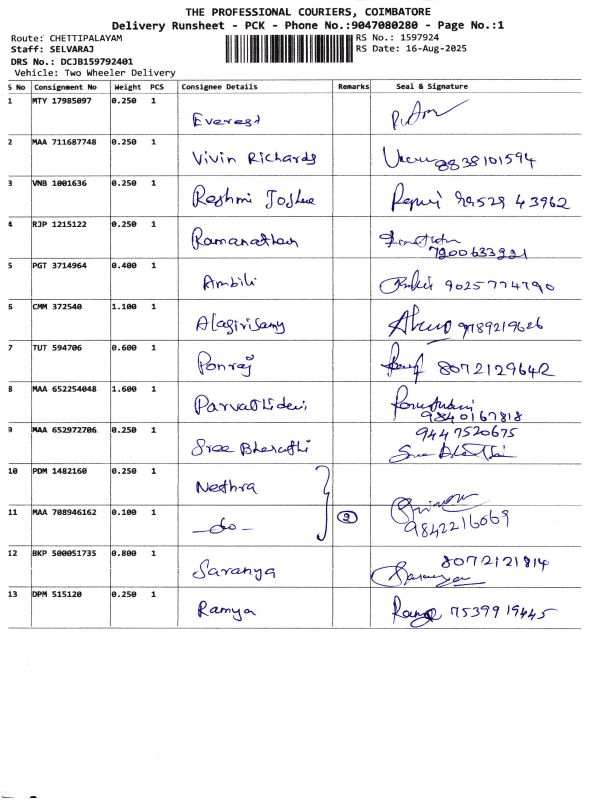 THE PROFESSIONAL COURIERS, COIMBATORE
Delivery Runsheet - PCK - Phone No.:9047080280 - Page No.:1
Route: CHETTIPALAYAM RS No.: 1597924
Staff: SELVARAJ RS Date: 16-Aug-2025
DRS No.: DCJB159792401
Vehicle: Two Wheeler Delivery
S No Consignment No Weight PCS Consignee Details Remarks Seal & Signature
1 MTY 17985097 0.250 1 Everest
2 MAA 711687748 0.250 1 Vivin Richards 8838101594
3 VNB 1001636 0.250 1 Reshmi Joshua 99529 43962
4 RJP 1215122 0.250 1 Ramanathan
7200633221
5 PGT 3714964 0.400 1 Ambili 9025774790
6 CMM 372540 1.100 1 Alagirisamy 9789219626
7 TUT 594706 0.600 1 Ponraj 8072129642
8 MAA 652254048 1.600 1 Parvathidevi
9840167818
9 MAA 652972706 0.250 1 Sree Bharathi 9447520675
10 PDM 1482160 0.250 1 Nethra
11 MAA 708946162 0.100 1 -do- 2 9842216069
12 BKP 500051735 0.800 1 Saranya 8072121814
13 DPM 515120 0.250 1 Ramya 7539919445